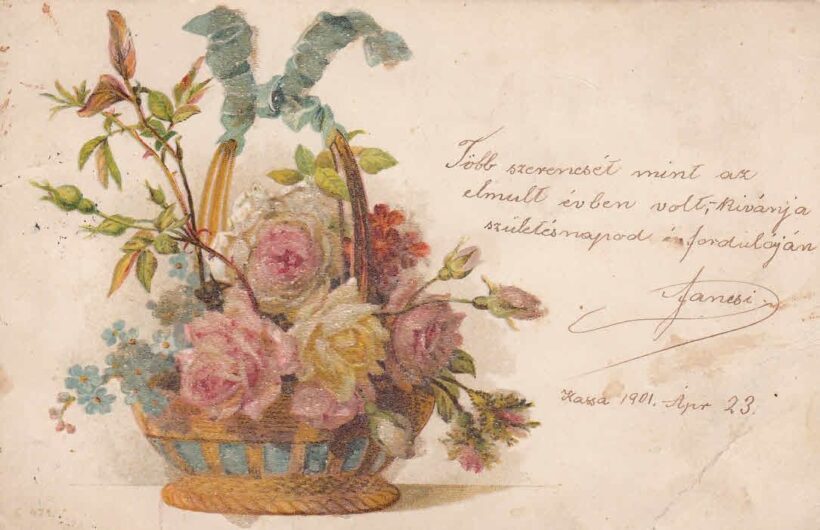 Több szerencsét mint az
elmult évben volt, kivánja
születésnapod évfordulóján
Jancsi
Kassa 1901. Apr 23.